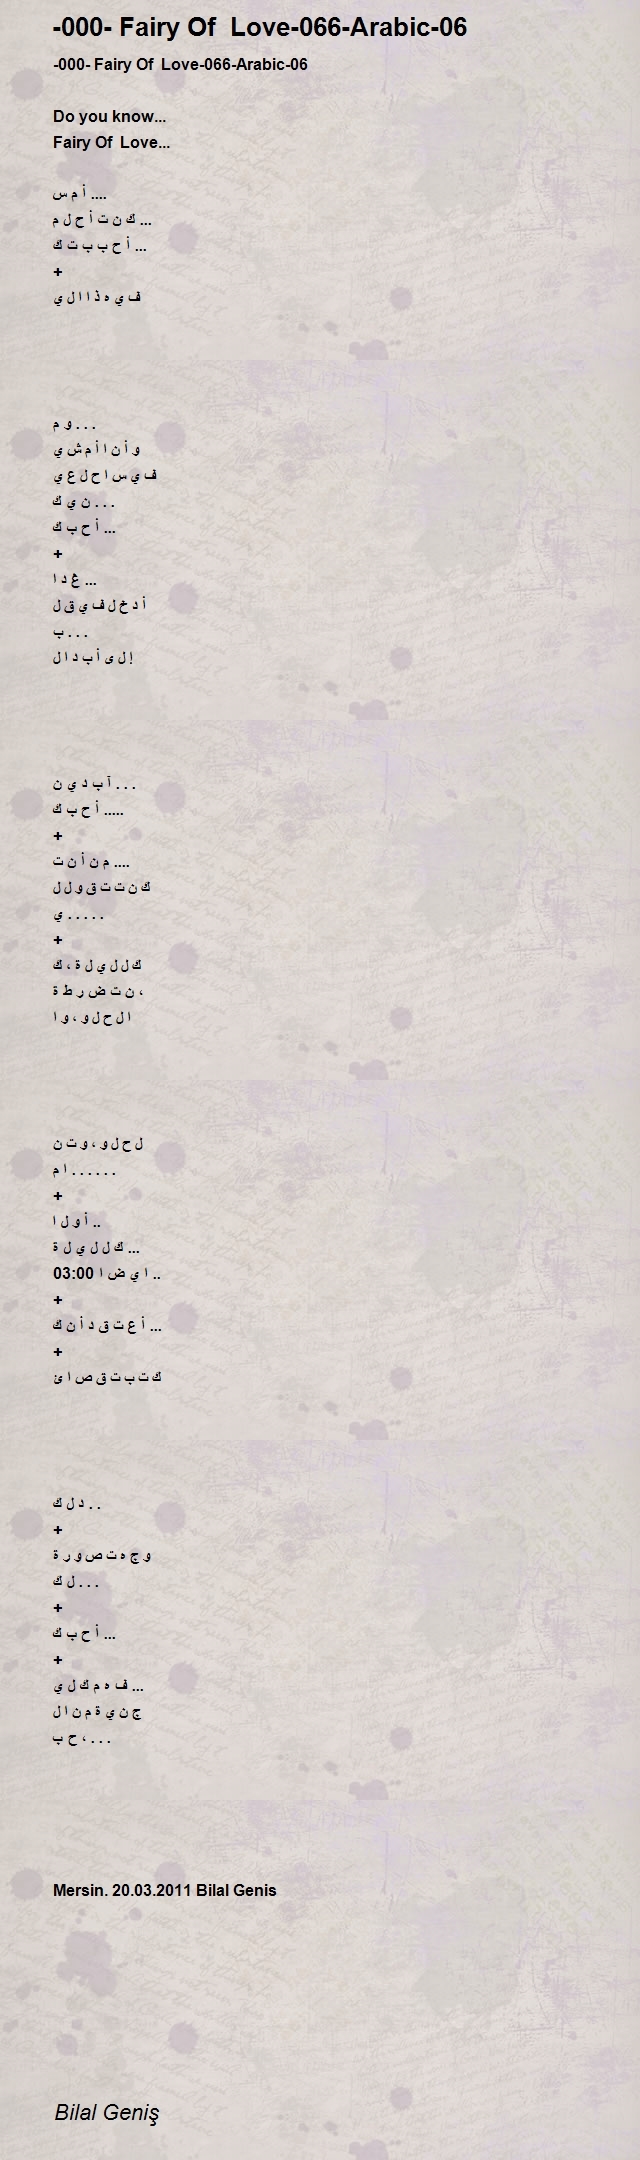 -000- Fairy Of Love-066-Arabic-06
-000- Fairy Of Love-066-Arabic-06
Do you know...
Fairy Of Love...
أ م س ....
ك ن ت أ ح ل م ...
أ ح ب ب ت ك ...
+
ف ي ه ذ ا ا ل ي
و م . . .
و أ ن ا أ م ش ي
ف ي س ا ح ل ع ي
ن ي ك . . .
أ ح ب ك ...
+
غ د ا ...
أ د خ ل ف ي ق ل
ب . . .
إ ل ى أ ب د ا ل
آ ب د ي ن . . .
أ ح ب ك .....
+
م ن أ ن ت ....
ك ن ت ت ق و ل ل
ي . . . . .
+
ك ل ل ي ل ة ، ك
، ن ت ض ر ط ة
ا ل ح ل و ، و ا
ل ح ل و ، و ت ن
ا م . . . . . .
+
أ و ل ا ..
ك ل ل ي ل ة ...
03:00 ا ي ض ا ..
+
أ ع ت ق د أ ن ك ...
+
ك ت ب ت ق ص ا ئ
د ل ك . .
+
و ج ه ت ص و ر ة
ل ك . . .
+
أ ح ب ك ...
+
ف ه م ك ل ي ...
ج ن ي ة م ن ا ل
ح ب ، . . .
Mersin. 20.03.2011 Bilal Genis
Bilal Geniş